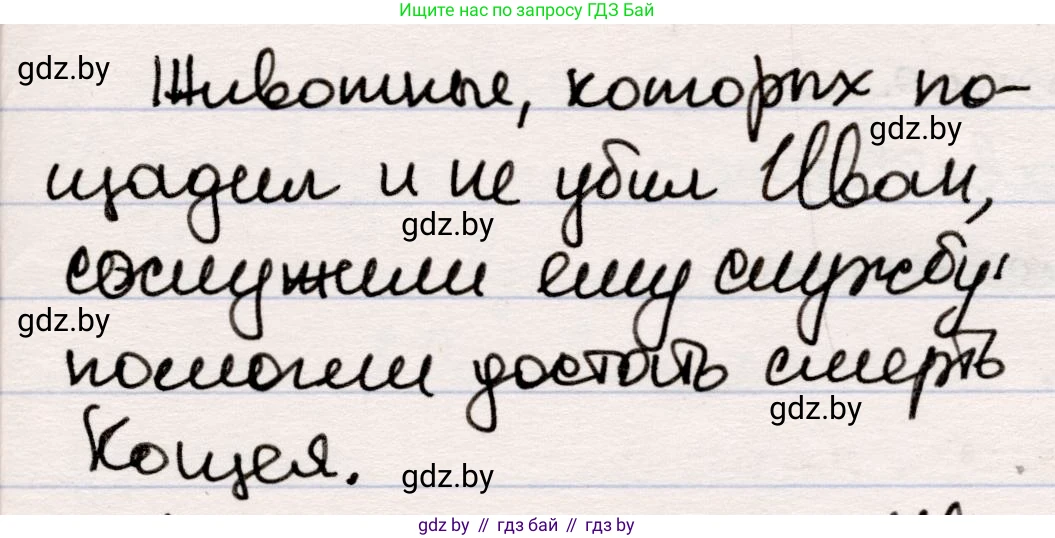 Ищите нас по запросу ГДЗ Бай
gdz.by
Животные, которых по-
gdz.by
щадил и не убил Иван,
gdz.by
сослужили ему службу:
gdz.by
помогли достать смерть
gdz.by
Кощея.
gdz.by
gdz by // гдз бай // гдз by